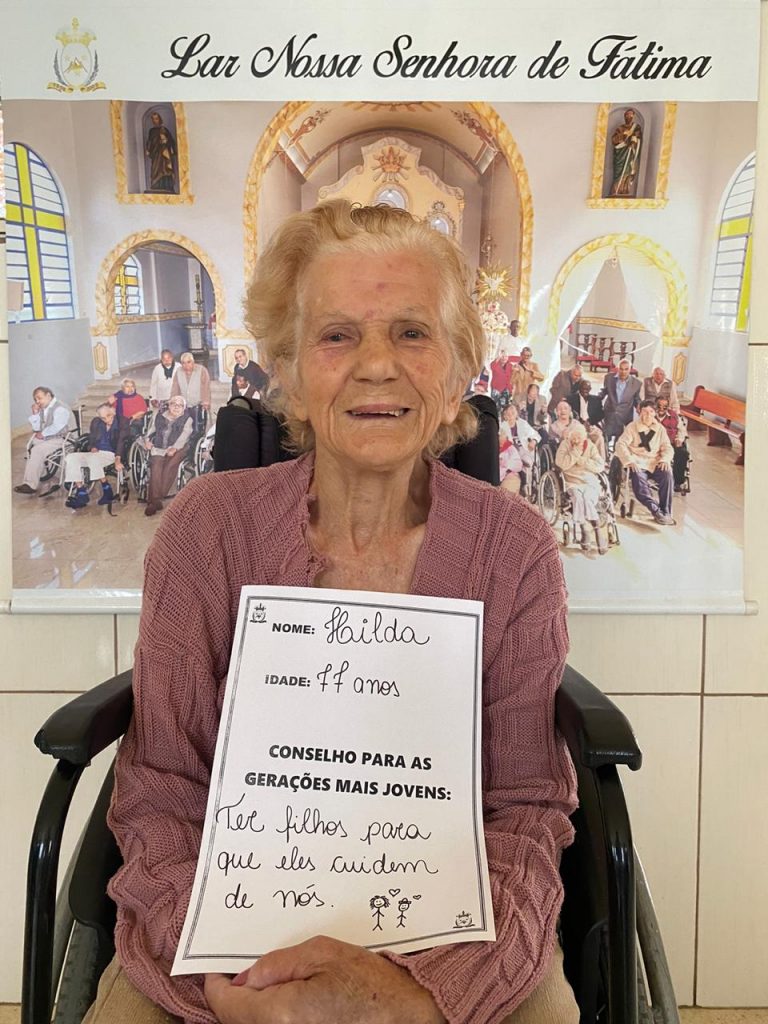 Lar Nossa Senhora de Fátima
NOME: Hilda
IDADE: 77 anos
CONSELHO PARA AS
GERAÇÕES MAIS JOVENS:
Ter filhos para
que eles cuidem
de nós.